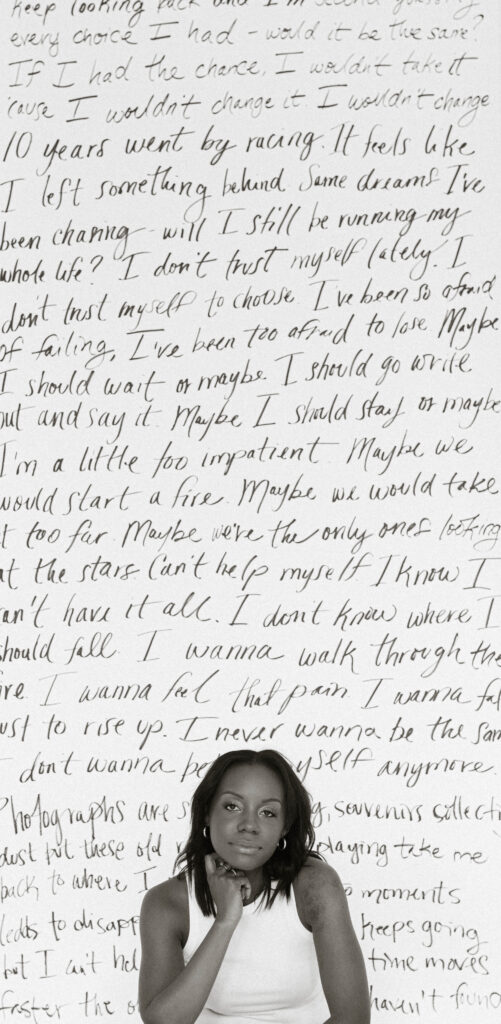 keep looking back and I'm second guessing
every choice I had - would it be the same?
If I had the chance, I wouldn't take it
'cause I wouldn't change it. I wouldn't change
10 years went by racing. It feels like
I left something behind. Some dreams I've
been chasing - will I still be running my
whole life? I don't trust myself lately. I
don't trust myself to choose. I've been so afraid
of failing, I've been too afraid to lose. Maybe
I should wait or maybe. I should go write
out and say it. Maybe I should stay or maybe
I'm a little too impatient. Maybe we
would start a fire. Maybe we would take
it too far. Maybe we're the only ones looking
at the stars Can't help myself I know I
can't have it all. I don't know where I
should fall. I wanna walk through the
fire I wanna feel that pain I wanna fall
just to rise up. I never wanna be the same
I don't wanna be myself anymore.
Photographs are souvenirs collecting
dust but these old playing take me
back to where I moments
leads to keeps going
but I can't time moves
faster the haven't found